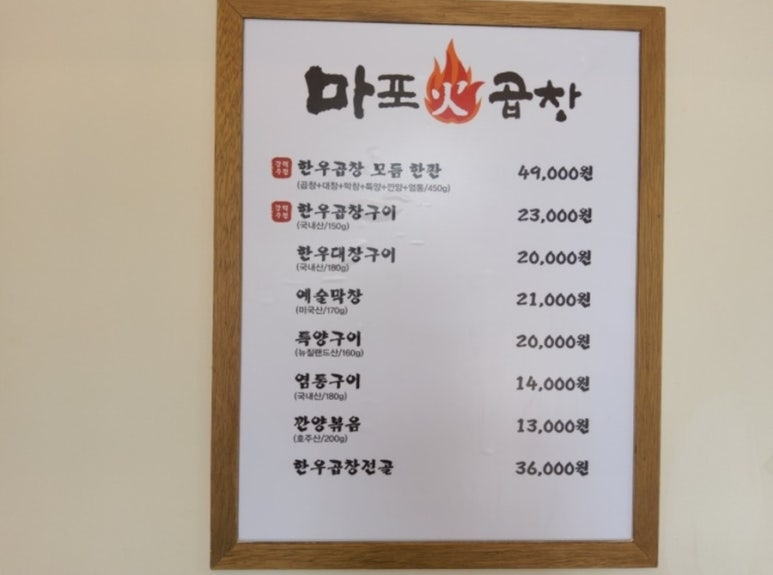 마포火곱창
강력추천 한우곱창 모듬 한판 49,000원
(곱창+대창+막창+특양+깐양+염통/450g)
강력추천 한우곱창구이 23,000원
(국내산/150g)
한우대창구이 20,000원
(국내산/180g)
예술막창 21,000원
(미국산/170g)
특양구이 20,000원
(뉴질랜드산/160g)
염통구이 14,000원
(국내산/180g)
깐양볶음 13,000원
(호주산/200g)
한우곱창전골 36,000원